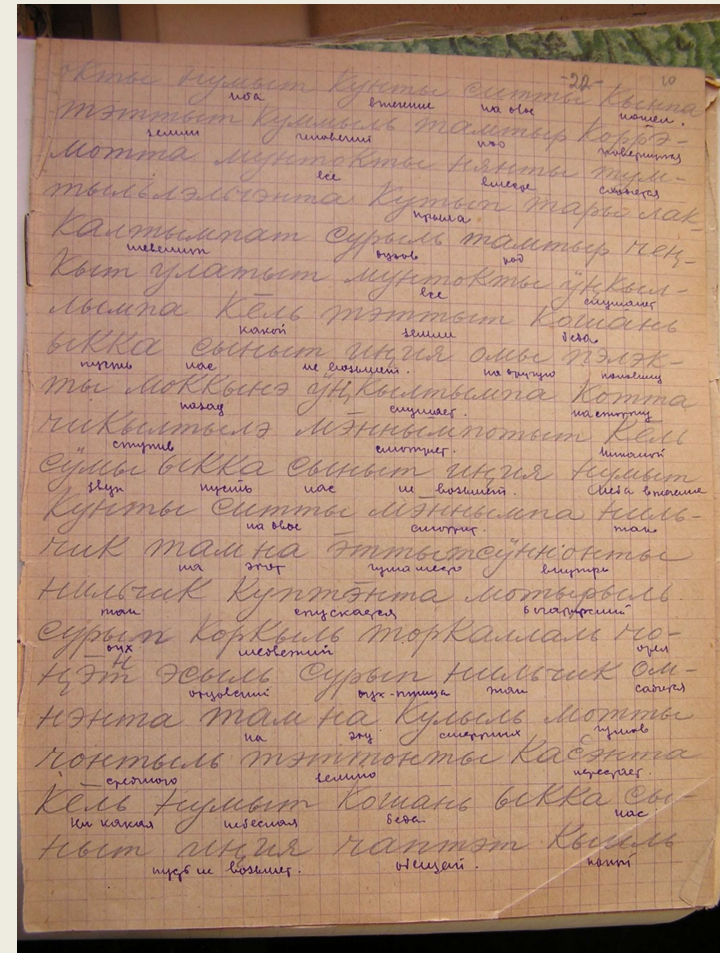 -22- 10
нумыт кунты ситты кынпа
неба втечение на овое пошел.
тэттыт куммыль тамтыр коррэ-
земли человечий род повернется
мотта мунтокты нянты тум-
все вместе
тыльлэльчэнта кутып тары лак-
крыла
калтымпат сурыль тамтыр чең-
шевелит духов род
кыт улатыт мунтокты ӱңкыл-
все слушает
лымпа кēль тэттыт кошань
какой земли беда
ыкка сыныт иңия омы пэлэк-
пусть нас не возьмет. на другую половину
ты моккынэ ӱңкылтымпа котта
назад слушает. на сторону
чикылтылэ мэннымпотыт кēль
ступив смотрет. никакой
сӱмы ыкка сыныт иңия нумыт
звук пусть нас не возьмет. неба втечение
кунты ситты мэннымпа ниль-
на овое смотрит. так
чик там на
на этот внутрь
нильчик куптэнта мотырыль
так спускается богатырский
сурып коркыль торкаллам чо-
дух медвежий орел
ңэт эсыль сурып нильчик ом-
отцовский дух-птица так садится
нэнта там на кулыль мотты
на эту смертных чумов
чонтыль тэттонты касэнта
среднего землю
кēль нумыт кошань ыкка сы-
ни какая небесная беда нас
ныт иңия чаптэт
пусть не возьмет. обещей.